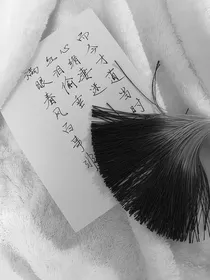 而今才道当时
心绪凄迷
红泪偷垂
满眼春风百事非